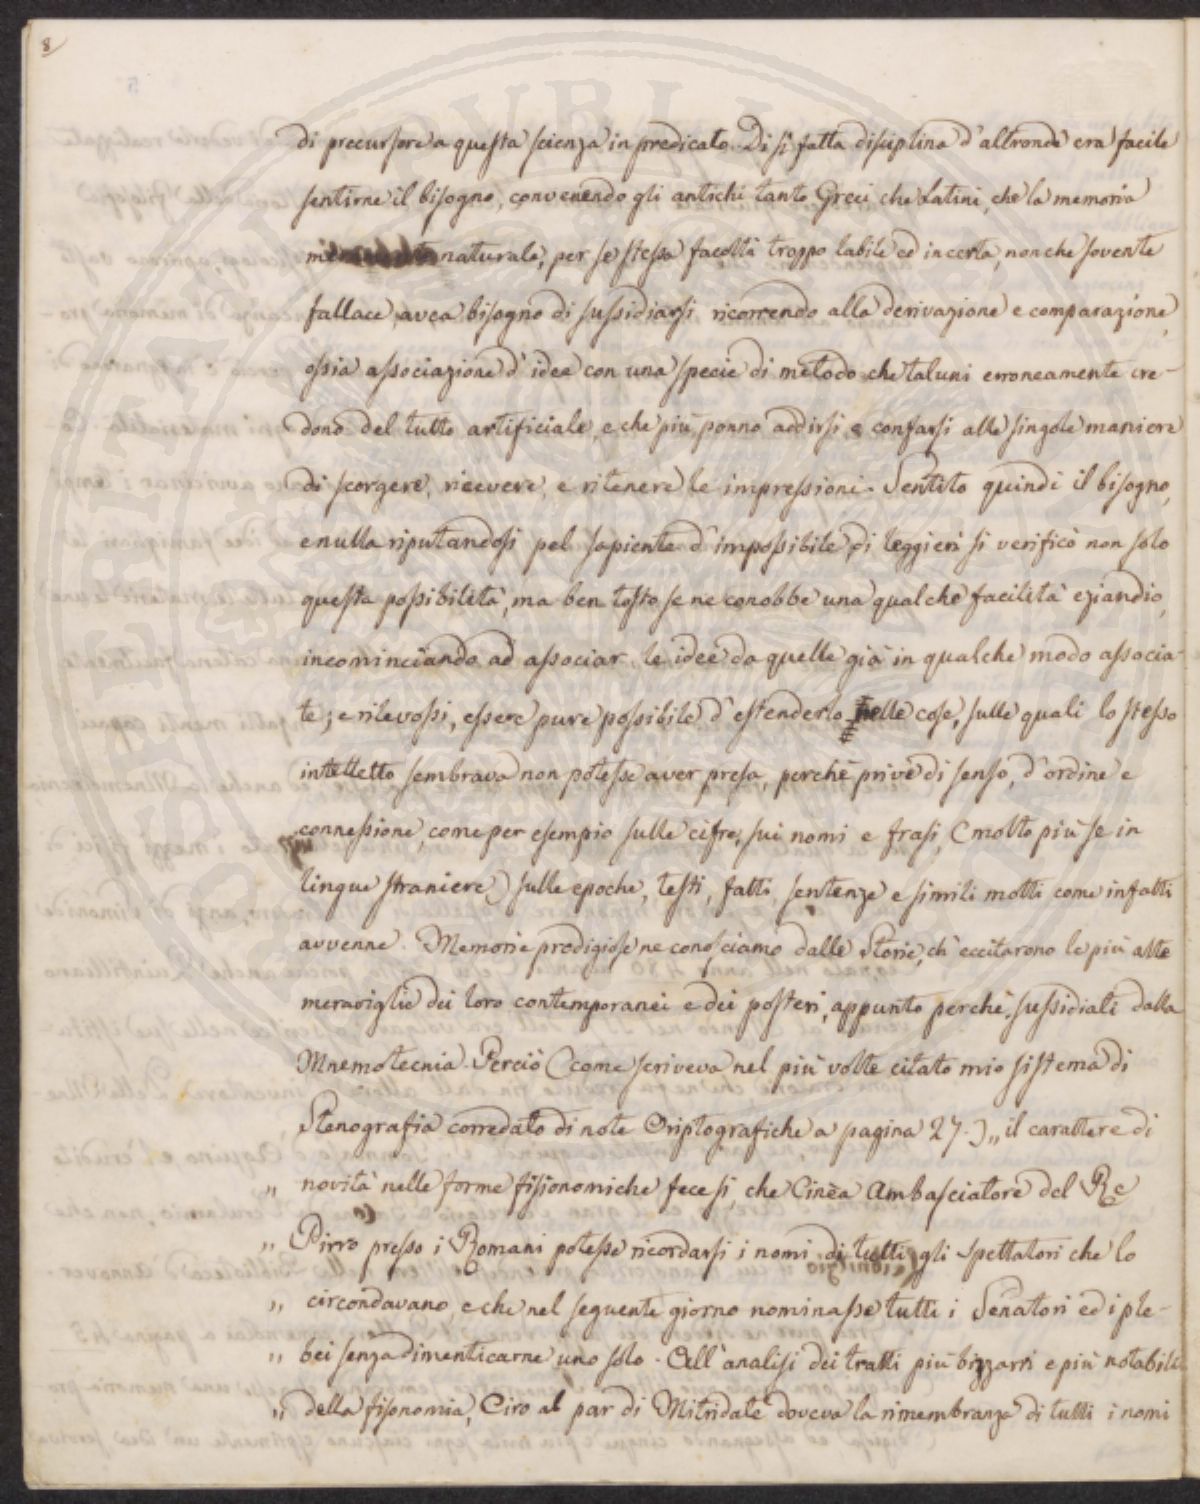 8
di precursore a questa scienza in predicato. Di sì fatta disciplina d'altronde era facile
sentirne il bisogno, convenendo gli antichi tanto Greci che Latini, che la memoria
naturale, per se stessa facoltà troppo labile ed incerta, nonche sovente
fallace, avea bisogno di sussidiarsi ricorrendo alla derivazione e comparazione,
ossia associazione d'idee con una specie di metodo che taluni erroneamente cre-
dono del tutto artificiale, e che più ponno addirsi e confarsi alle singole maniere
di scorgere, ricevere, e ritenere le impressioni. Sentito quindi il bisogno,
e nulla riputandosi pel sapiente d'impossibile, di leggieri si verificò non solo
questa possibilità, ma ben tosto se ne conobbe una qualche facilità eziandio,
incominciando ad associar le idee da quelle già in qualche modo associa-
te; e rilevossi, essere pure possibile d'estenderlo nelle cose, sulle quali lo stesso
intelletto sembrava non potesse aver presa, perchè prive di senso, d'ordine e
connessione, come per esempio sulle cifre, sui nomi e frasi, (molto più se in
lingue straniere) sulle epoche, testi, fatti, sentenze e simili motti come infatti
avvenne. Memorie prodigiose ne conosciamo dalle Storie, ch'eccitarono le più alte
meraviglie dei loro contemporanei e dei posteri, appunto perchè sussidiati dalla
Mnemotecnia. Perciò (come scriveva nel più volte citato mio sistema di
Stenografia corredato di note Criptografiche a pagina 27.) „ il carattere di
„ novità nelle forme fisionomiche fece sì, che Cinèa Ambasciatore del Re
„ Pirro presso i Romani potesse ricordarsi i nomi di tutti gli spettatori che lo
„ circondavano, e che nel seguente giorno nominasse tutti i Senatori ed i ple-
„ bei senza dimenticarne uno solo. All'analisi dei tratti più bizzarri e più notabili
„ della fisonomia, Ciro al par di Mitridate doveva la rimembranza di tutti i nomi